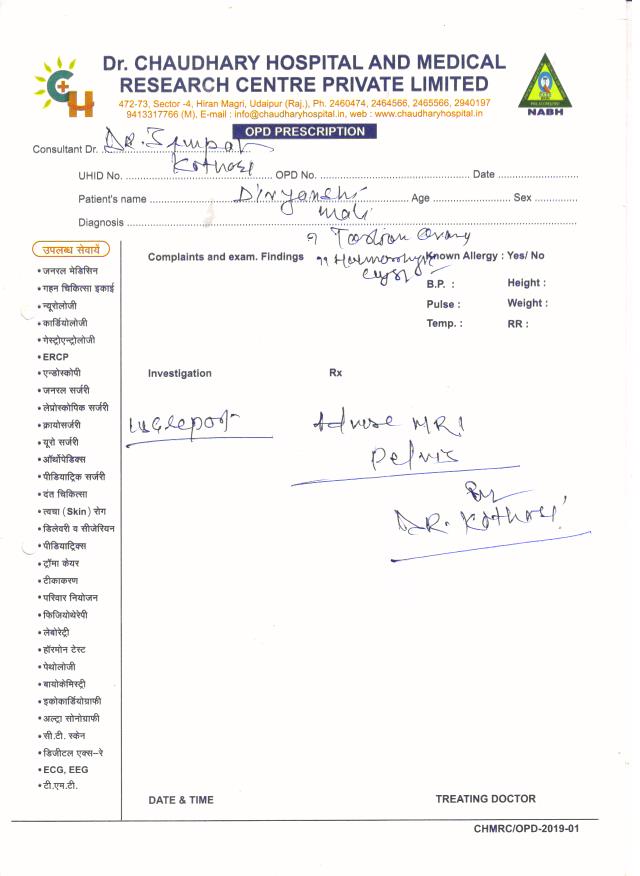 Dr. CHAUDHARY HOSPITAL AND MEDICAL
RESEARCH CENTRE PRIVATE LIMITED
472-73, Sector -4, Hiran Magri, Udaipur (Raj.), Ph. 2460474, 2464566, 2465566, 2940197
9413317766 (M), E-mail : info@chaudharyhospital.in, web : www.chaudharyhospital.in
CH
NABH
OPD PRESCRIPTION
Consultant Dr. DR.
Kothari
UHID No. OPD No. Date
Patient's name Divyanshi Age Sex
Mali
Diagnosis
? Torsion Ovary
Complaints and exam. Findings ?? Known Allergy : Yes/ No
B.P. : Height :
Pulse : Weight :
Temp. : RR :
Investigation Rx
Advise MRI
Pelvis
By
DR. Kothari
उपलब्ध सेवायें
• जनरल मेडिसिन
• गहन चिकित्सा इकाई
• न्यूरोलोजी
• कार्डियोलोजी
• गेस्ट्रोएन्ट्रोलोजी
• ERCP
• एन्डोस्कोपी
• जनरल सर्जरी
• लेप्रोस्कोपिक सर्जरी
• क्रायोसर्जरी
• यूरो सर्जरी
• ऑर्थोपेडिक्स
• पीडियाट्रिक सर्जरी
• दंत चिकित्सा
• त्वचा (Skin) रोग
• डिलेवरी व सीजेरियन
• पीडियाट्रिक्स
• ट्रॉमा केयर
• टीकाकरण
• परिवार नियोजन
• फिजियोथेरेपी
• लेबोरेट्री
• हॉरमोन टेस्ट
• पेथोलोजी
• बायोकेमिस्ट्री
• इकोकार्डियोग्राफी
• अल्ट्रा सोनोग्राफी
• सी.टी. स्केन
• डिजीटल एक्स–रे
• ECG, EEG
• टी.एम.टी.
DATE & TIME TREATING DOCTOR
CHMRC/OPD-2019-01